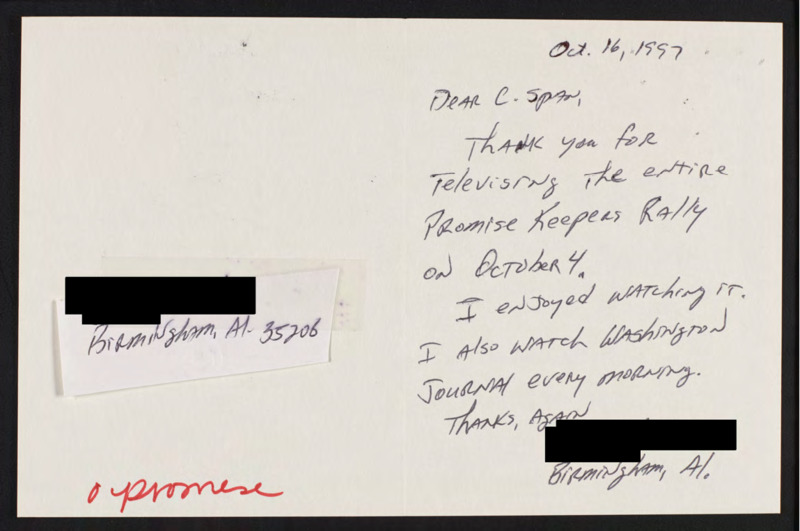 Oct. 16, 1997
Dear C-Span,
Thank you for
Televising the entire
Promise Keepers Rally
on October 4.
I enjoyed watching it.
I also watch Washington
Journal every morning.
Thanks, Again
Birmingham, Al.
Birmingham, Al. 35206
promese